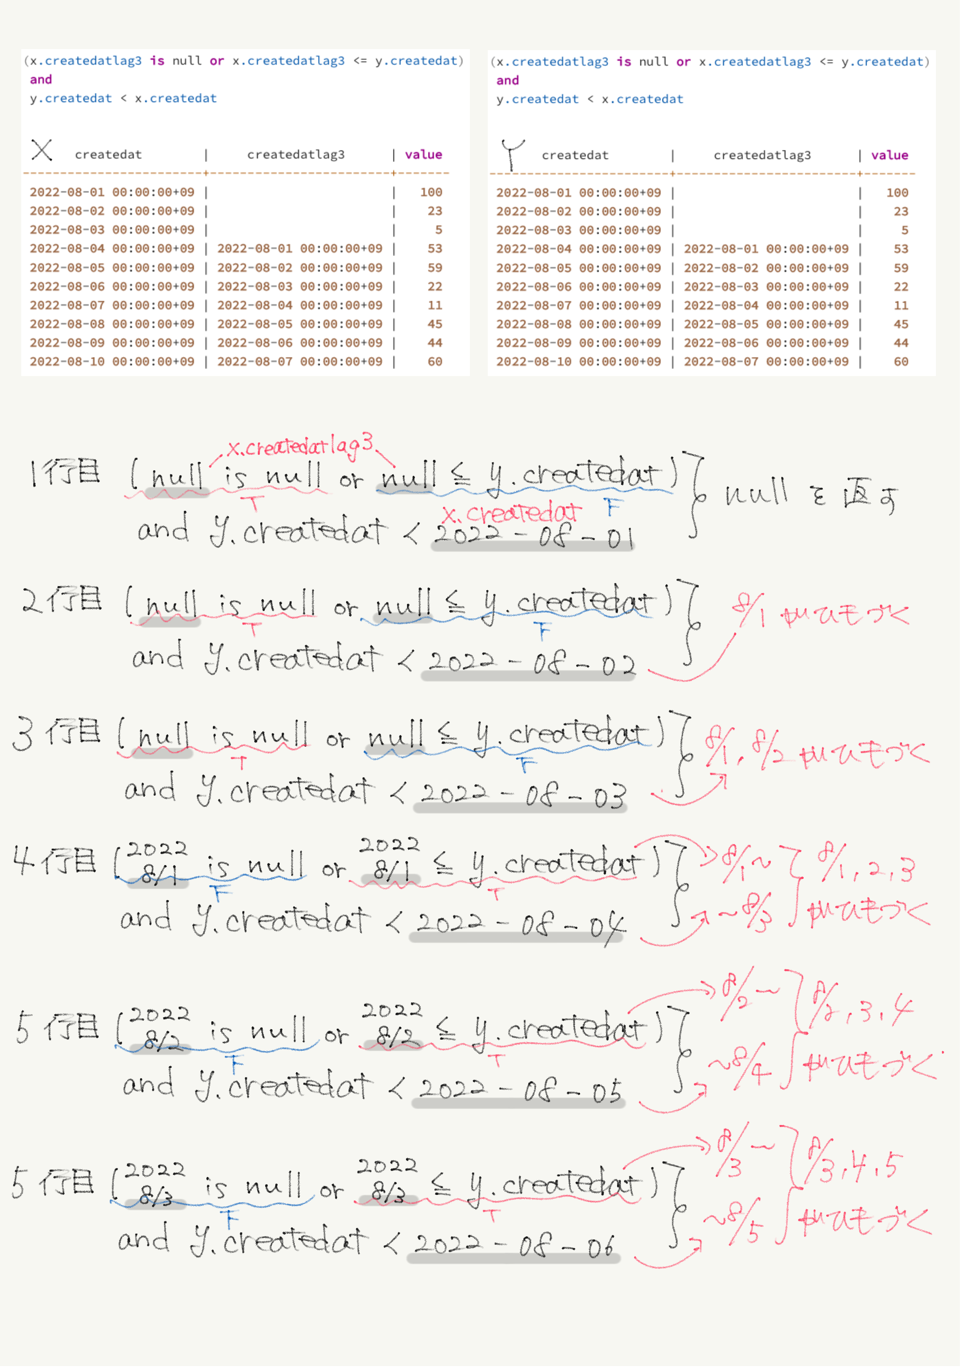 (x.createdatlag3 is null or x.createdatlag3 <= y.createdat)
and
y.createdat < x.createdat
X createdat | createdatlag3 | value
2022-08-01 00:00:00+09 | | 100
2022-08-02 00:00:00+09 | | 23
2022-08-03 00:00:00+09 | | 5
2022-08-04 00:00:00+09 | 2022-08-01 00:00:00+09 | 53
2022-08-05 00:00:00+09 | 2022-08-02 00:00:00+09 | 59
2022-08-06 00:00:00+09 | 2022-08-03 00:00:00+09 | 22
2022-08-07 00:00:00+09 | 2022-08-04 00:00:00+09 | 11
2022-08-08 00:00:00+09 | 2022-08-05 00:00:00+09 | 45
2022-08-09 00:00:00+09 | 2022-08-06 00:00:00+09 | 44
2022-08-10 00:00:00+09 | 2022-08-07 00:00:00+09 | 60
(x.createdatlag3 is null or x.createdatlag3 <= y.createdat)
and
y.createdat < x.createdat
Y createdat | createdatlag3 | value
2022-08-01 00:00:00+09 | | 100
2022-08-02 00:00:00+09 | | 23
2022-08-03 00:00:00+09 | | 5
2022-08-04 00:00:00+09 | 2022-08-01 00:00:00+09 | 53
2022-08-05 00:00:00+09 | 2022-08-02 00:00:00+09 | 59
2022-08-06 00:00:00+09 | 2022-08-03 00:00:00+09 | 22
2022-08-07 00:00:00+09 | 2022-08-04 00:00:00+09 | 11
2022-08-08 00:00:00+09 | 2022-08-05 00:00:00+09 | 45
2022-08-09 00:00:00+09 | 2022-08-06 00:00:00+09 | 44
2022-08-10 00:00:00+09 | 2022-08-07 00:00:00+09 | 60
x.createdatlag3
1行目 (null is null or null ≦ y.createdat) nullを返す
T x.createdat F
and y.createdat < 2022-08-01
2行目 (null is null or null ≦ y.createdat) 8/1がひもづく
T F
and y.createdat < 2022-08-02
3行目 (null is null or null ≦ y.createdat) 8/1, 8/2がひもづく
T F
and y.createdat < 2022-08-03
4行目 (2022 8/1 is null or 2022 8/1 ≦ y.createdat) 8/1~ 8/1,2,3
F T
and y.createdat < 2022-08-04 ~8/3 がひもづく
5行目 (2022 8/2 is null or 2022 8/2 ≦ y.createdat) 8/2~ 8/2,3,4
F T
and y.createdat < 2022-08-05 ~8/4 がひもづく
5行目 (2022 8/3 is null or 2022 8/3 ≦ y.createdat) 8/3~ 8/3,4,5
F T
and y.createdat < 2022-08-06 ~8/5 がひもづく